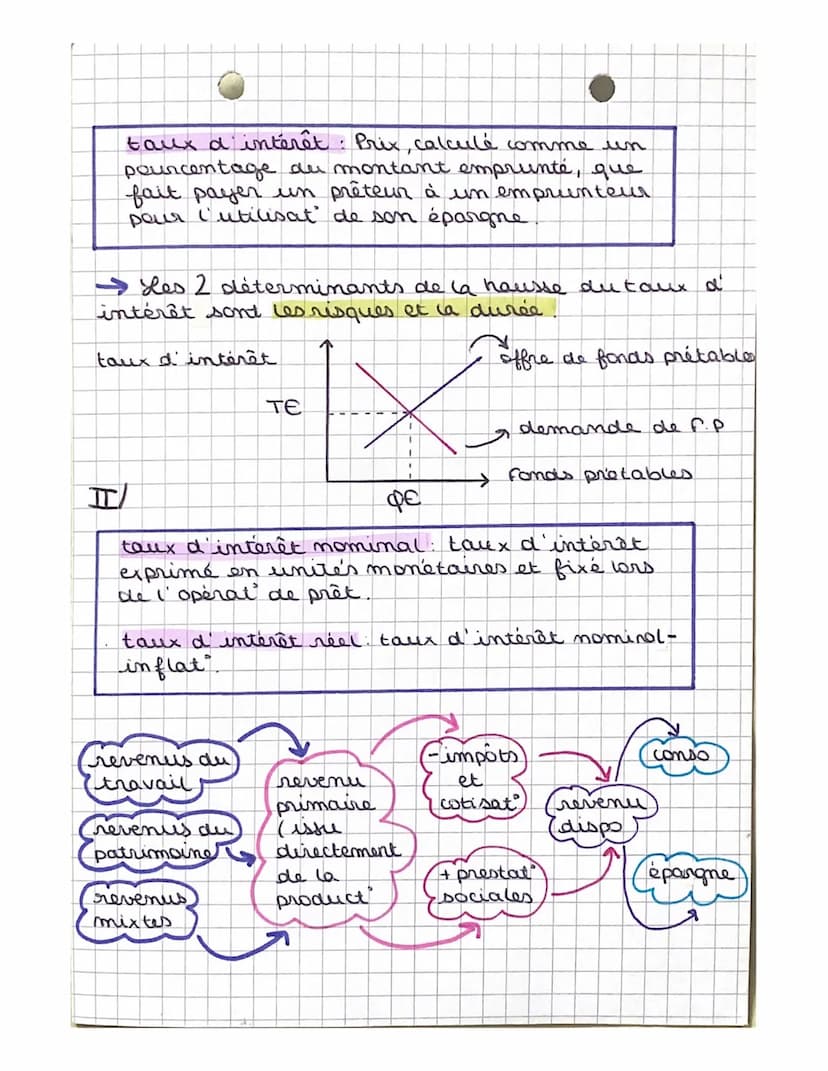 taux d'intérêt : Prix, calculé comme un
pourcentage du montant emprunté, que
fait payer un prêteur à un emprunteur
pour l'utilisat° de son épargne.
→ Les 2 déterminants de la hausse du taux d'
intérêt sont les risques et la durée.
taux d'intérêt
offre de fonds prétable
T€
demande de F.P
fonds prétables
II/
Q€
taux d'intérêt nominal: taux d'intérêt
exprimé en unités monétaires et fixé lors
de l'opérat° de prêt.
taux d'intérêt réel: taux d'intérêt nominal-
inflat°.
revenus du
travail
revenus du
patrimoine
revenus
mixtes
revenu
primaire
(issu
directement
de la
product°
-impôts
et
cotisat°
+ prestat°
sociales
revenu
dispo
conso
épargne